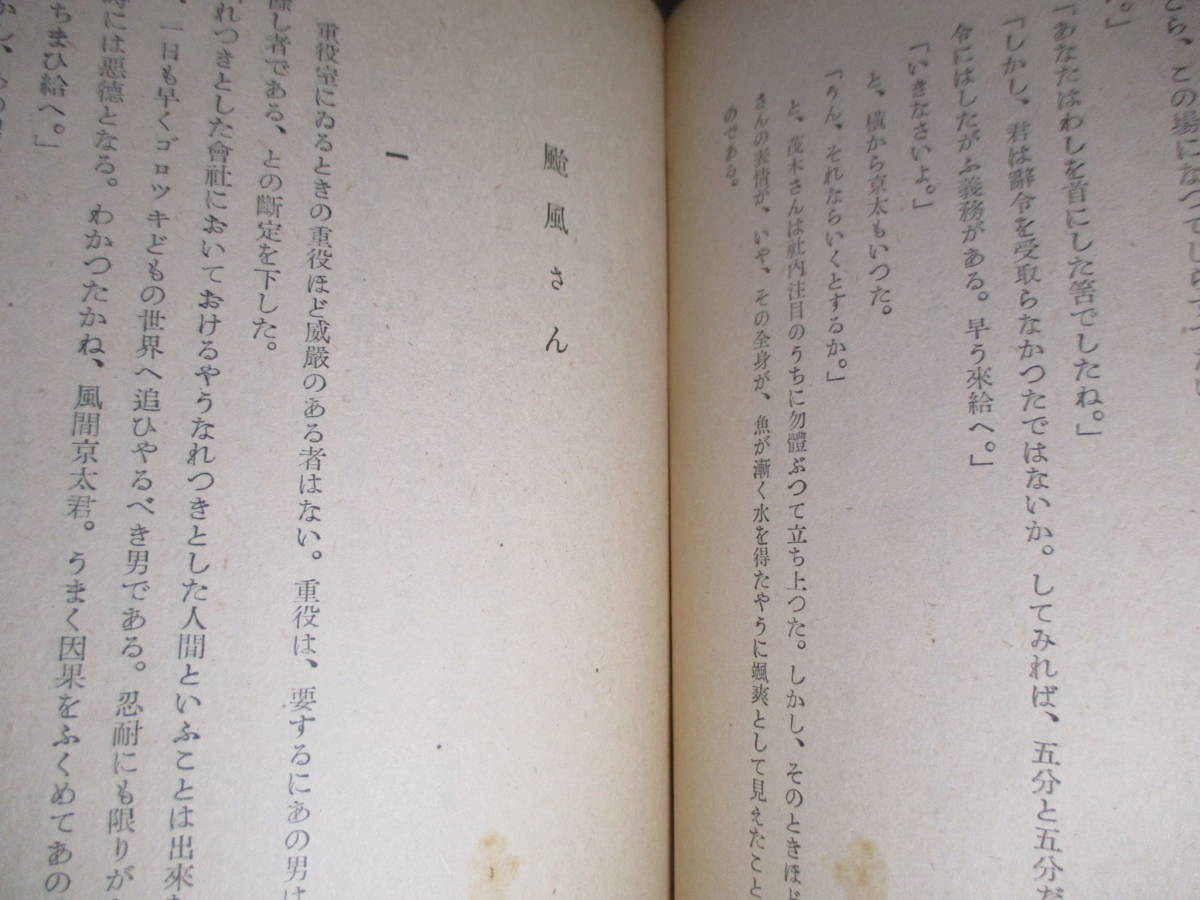 ら、この場になつてしら
。」
「あなたはわしを首にした筈でしたね。」
「しかし、君は辭令を受取らなかつたではないか。してみれば、五分と五分だ
令にはしたがふ義務がある。早う來給へ。」
「いきなさいよ。」
と、横から京太もいつた。
「うん、それならいくとするか。」
と、茂木さんは社内注目のうちに勿體ぶつて立ち上つた。しかし、そのときほど
さんの表情が、いや、その全身が、魚が漸く水を得たやうに颯爽として見えたこと
のである。
颱風さん
一
重役室にゐるときの重役ほど威嚴のある者はない。重役は、要するにあの男は
し者である、との斷定を下した。
れつきとした會社においておけるやうなれつきとした人間といふことは出來
一日も早くゴロツキどもの世界へ追ひやるべき男である。忍耐にも限りが
時には惡德となる。わかつたかね、風間京太君。うまく因果をふくめてあの
ちまひ給へ。」